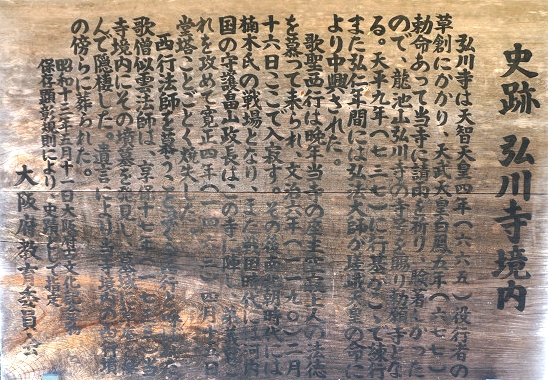 史跡 弘川寺境内
弘川寺は天智天皇四年(六六五)役行者の
草創にかかり、天武天皇白鳳五年(六七七)
勅命あって当寺に請雨を祈り、験者しかった
ので、龍池山弘川寺の寺号を賜り勅願寺とな
る。天平九年(七三七)に行基が て練行
また弘仁年間には弘法大師が嵯峨天皇の命に
より中興された。
歌聖西行は晩年当寺の座主空寂上人の法徳
を慕って来られ、文治六年(一一九〇)二月
十六日ここで入寂す。その後南北朝時代には
楠木氏の戦場となり、また戦国時代には河内
国の守護畠山政長はこの寺に陣し
れを攻めて寛正四年(一四六三)四月十五日
堂塔ことごとく焼失した。
西行法師を慕う
歌僧似雲法師は、享保十七年(一七
寺境内にその墳墓を発見し、
んで隠棲した。遺言により当寺境内の
の傍らに葬られた。
昭和十三年 月十一日大阪府
保存顕彰規則により、史蹟として指定
大阪府教育委員会